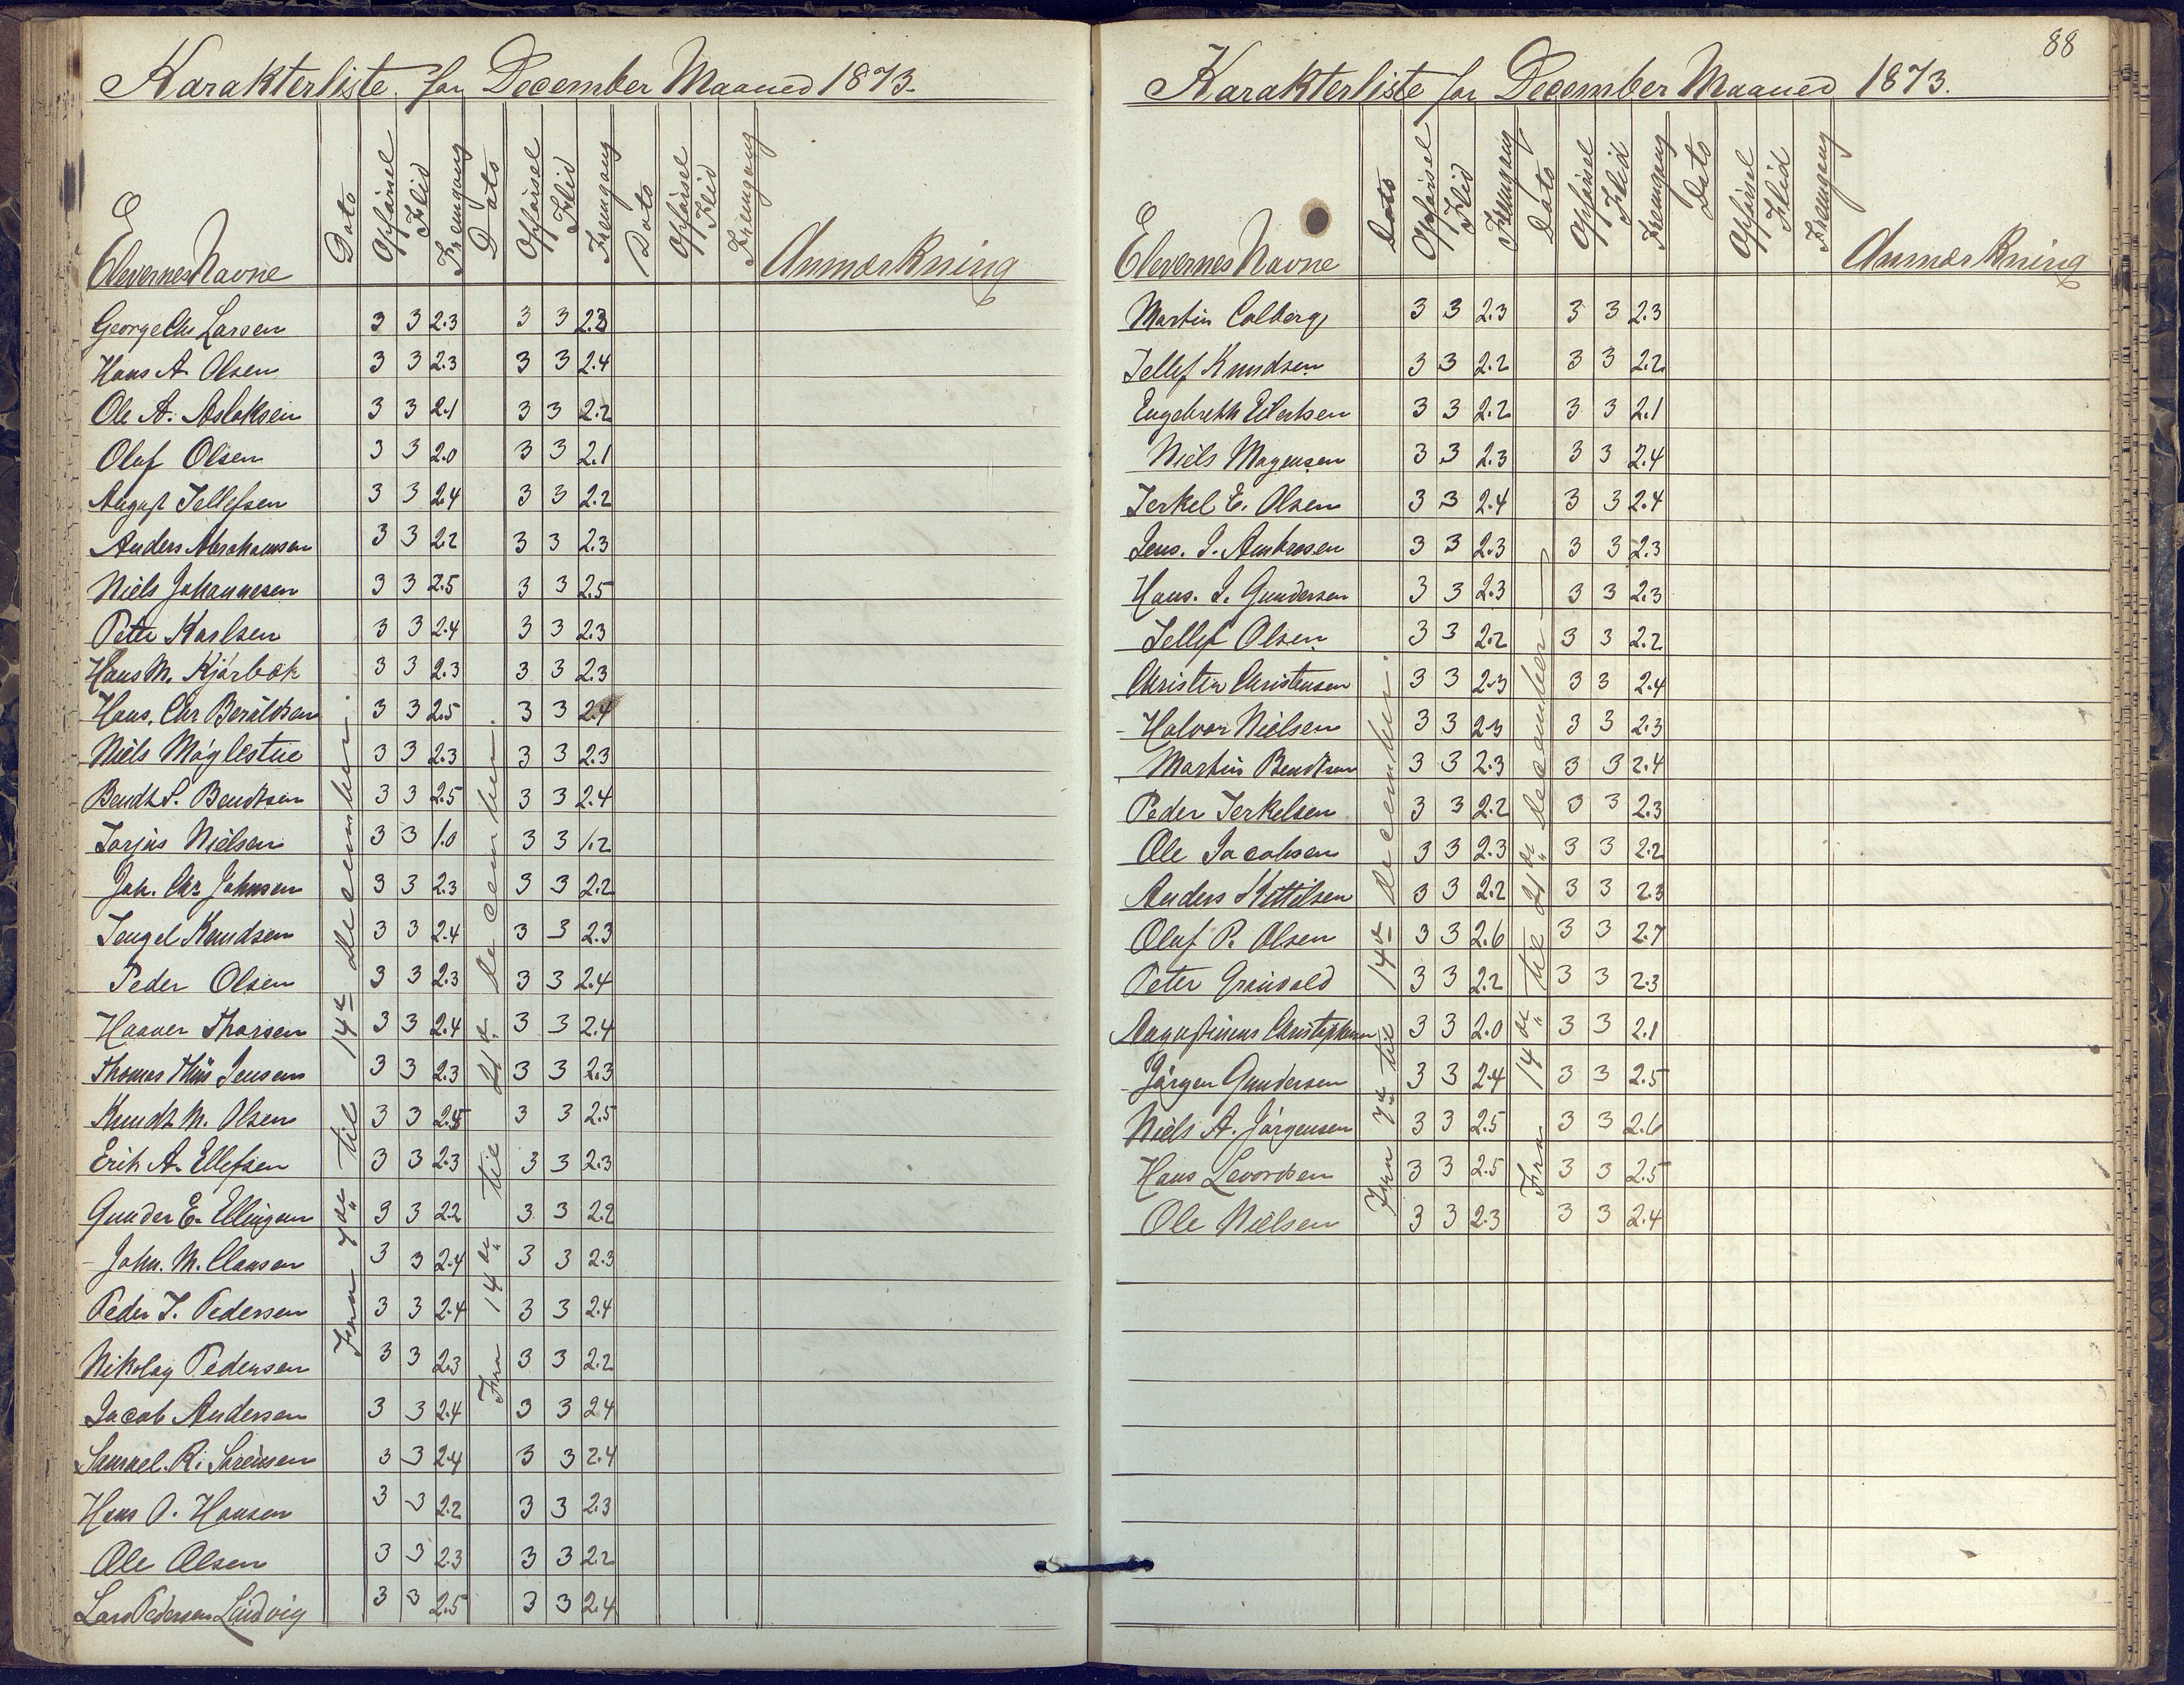 Karakterliste for December Maaned 1873.
Elevernes Navne Dato Opførsel Flid Fremgang Dato Opførsel Flid Fremgang Dato Opførsel Flid Fremgang Anmærkning
Fra 7de til 14de december.
Fra 14de til 21de december.
George Chr Larsen 3 3 2.3 3 3 2.3
Hans A. Olsen 3 3 2.3 3 3 2.4
Ole A. Aslaksen 3 3 2.1 3 3 2.2
Oluf Olsen 3 3 2.0 3 3 2.1
August Tellefsen 3 3 2.4 3 3 2.2
Anders Abrahamsen 3 3 2.2 3 3 2.3
Niels Johannesen 3 3 2.5 3 3 2.5
Peter Karlsen 3 3 2.4 3 3 2.3
Hans M. Kjørbøk 3 3 2.3 3 3 2.3
Hans. Chr Beruldsen 3 3 2.5 3 3 2.4
Niels Møglestue 3 3 2.3 3 3 2.3
Bendt S. Bendtsen 3 3 2.5 3 3 2.4
Torjus Nielsen 3 3 1.0 3 3 1.2
Joh. Chr Johnsen 3 3 2.3 3 3 2.2
Tengel Knudsen 3 3 2.4 3 3 2.3
Peder Olsen 3 3 2.3 3 3 2.4
Haaver Thorsen 3 3 2.4 3 3 2.4
Thomas Thiis Jensen 3 3 2.3 3 3 2.3
Knudt M. Olsen 3 3 2.5 3 3 2.5
Erik A. Ellefsen 3 3 2.3 3 3 2.3
Gunder E. Ellingsen 3 3 2.2 3 3 2.2
John. M. Claasen 3 3 2.4 3 3 2.3
Peder T. Pedersen 3 3 2.4 3 3 2.4
Nikolay Pedersen 3 3 2.3 3 3 2.2
Jacob Andersen 3 3 2.4 3 3 2.4
Samuel. R. Sørensen 3 3 2.4 3 3 2.4
Hans O. Hansen 3 3 2.2 3 3 2.3
Ole Olsen 3 3 2.3 3 3 2.2
Lars Pedersen Lindvig 3 3 2.5 3 3 2.4
88
Karakterliste for December Maaned 1873.
Elevernes Navne Dato Opførsel Flid Fremgang Dato Opførsel Flid Fremgang Dato Opførsel Flid Fremgang Anmærkning
Fra 7de til 14de december.
Fra 14de til 21de december
Martin Colberg 3 3 2.3 3 3 2.3
Tellef Knudsen 3 3 2.2 3 3 2.2
Engebreth Eilertsen 3 3 2.2 3 3 2.1
Niels Mogensen 3 3 2.3 3 3 2.4
Terkel E. Olsen 3 3 2.4 3 3 2.4
Jens. J. Ambrosen 3 3 2.3 3 3 2.3
Hans. J. Gundersen 3 3 2.3 3 3 2.3
Tellef Olsen 3 3 2.2 3 3 2.2
Christen Christensen 3 3 2.3 3 3 2.4
Halvor Nielsen 3 3 2.3 3 3 2.3
Martin Bendtsen 3 3 2.3 3 3 2.4
Peder Terkelsen 3 3 2.2 3 3 2.3
Ole Jacobsen 3 3 2.3 3 3 2.2
Anders Kittilsen 3 3 2.2 3 3 2.3
Oluf P. Olsen 3 3 2.6 3 3 2.7
Peter Grønvold 3 3 2.2 3 3 2.3
Augustinius Christophersen 3 3 2.0 3 3 2.1
Jørgen Gundersen 3 3 2.4 3 3 2.5
Niels A. Jørgensen 3 3 2.5 3 3 2.6
Hans Levordsen 3 3 2.5 3 3 2.5
Ole Nielsen 3 3 2.3 3 3 2.4